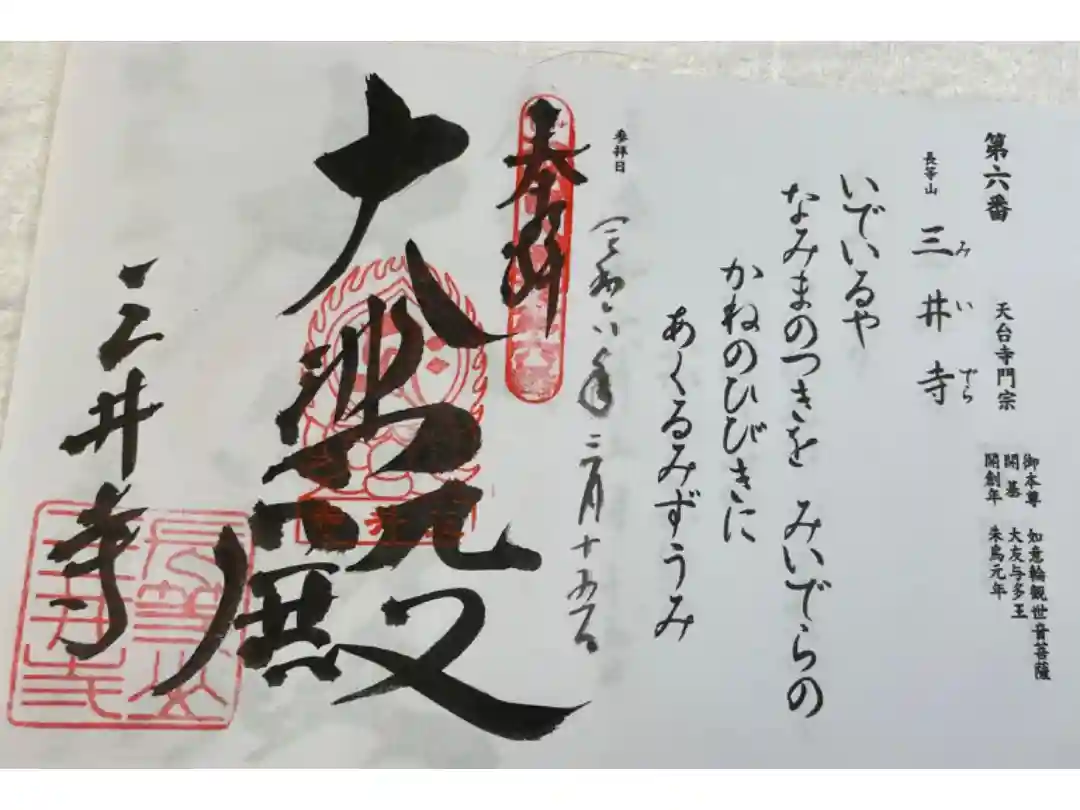 第六番 天台寺門宗
御本尊 如意輪観世音菩薩
開基 大友与多王
開創年 朱鳥元年
長等山 三井寺
み い でら
いでいるや
なみまのつきを みいでらの
かねのひびきに
あくるみずうみ
参拝日 令和六年二月十五日
奉拝
大悲殿
三井寺